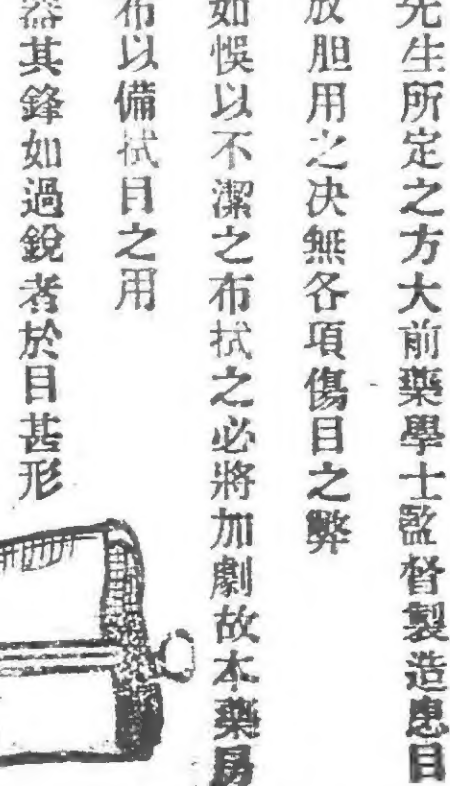 先生所定之方大前藥學士監督製造患目
放胆用之决無各項傷目之弊
如悞以不潔之布拭之必將加劇故本藥房
布以備拭目之用
器其鋒如過銳者於目甚形